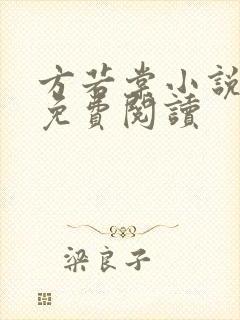 方若棠小說
免費閱讀
梁良子